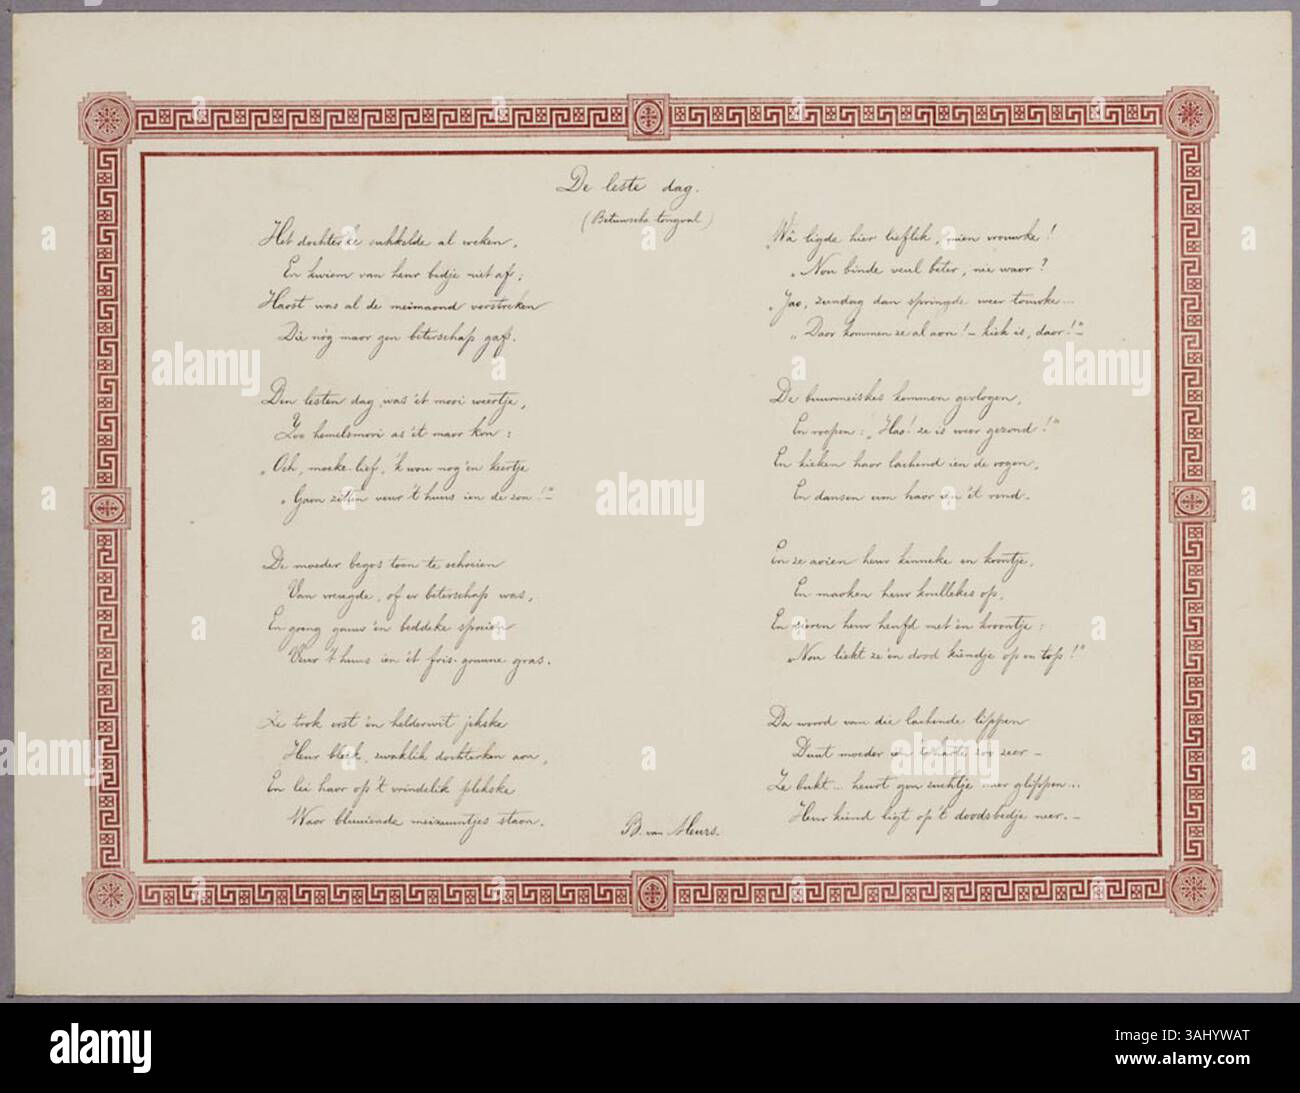 De leste dag.
(Betuwsche tongval)
Het dochterke sukkelde al weken,
En kwiem van heur bedje niet af;
Haost was al de meimaond verstreken
Die nòg maor gen beterschap gaf.
Den lesten dag, was 'et mooi weertje,
Zoo hemelsmooi as 'et maor kon:
"Och, moeke lief, 'k wou nog 'en keertje
"Gaon zitten veur 't huus ien de zon!"—
De moeder begos toen te schreien
Van vreugde, of er beterschap was,
En gong gauw 'en beddeke spreien
Veur 't huus ien 'et fris-gruune gras.
Ze trok eerst 'en helderwit jekske
Heur bleek, zwaklik dochterken aon,
En lei haor op 't vrindelik plekske
Waor bluuiende meizuuntjes staon.
"Wà ligde hier lieflik, mien vrouwke!
"Nou binde veul beter, nie waor?
"Jao, zundag dan springde weer touwke...
"Daor kommen ze al aon! — kiek is, daor!"—
De buurmeiskes kommen gevlogen,
En roepen: "Hao! ze is weer gezond!"
En kieken haor lachend ien de oogen,
En dansen um haor ien 't rond.
En ze aoien heur kinneke en koontje,
En maoken heur krullekes op,
En sieren heur heufd met 'en kroontje:
"Nou liekt ze 'en dood kiendje op en top!"
Da woord van die lachende lippen
Duut moeder ien 't harte zoo zeer —
Ze bukt... heurt gen zuchtje meer glippen...
Heur kiend ligt op 't doodsbedje neer.—
B. van Meurs.
alamy
a
Image ID: 3AHYWAT
www.alamy.com